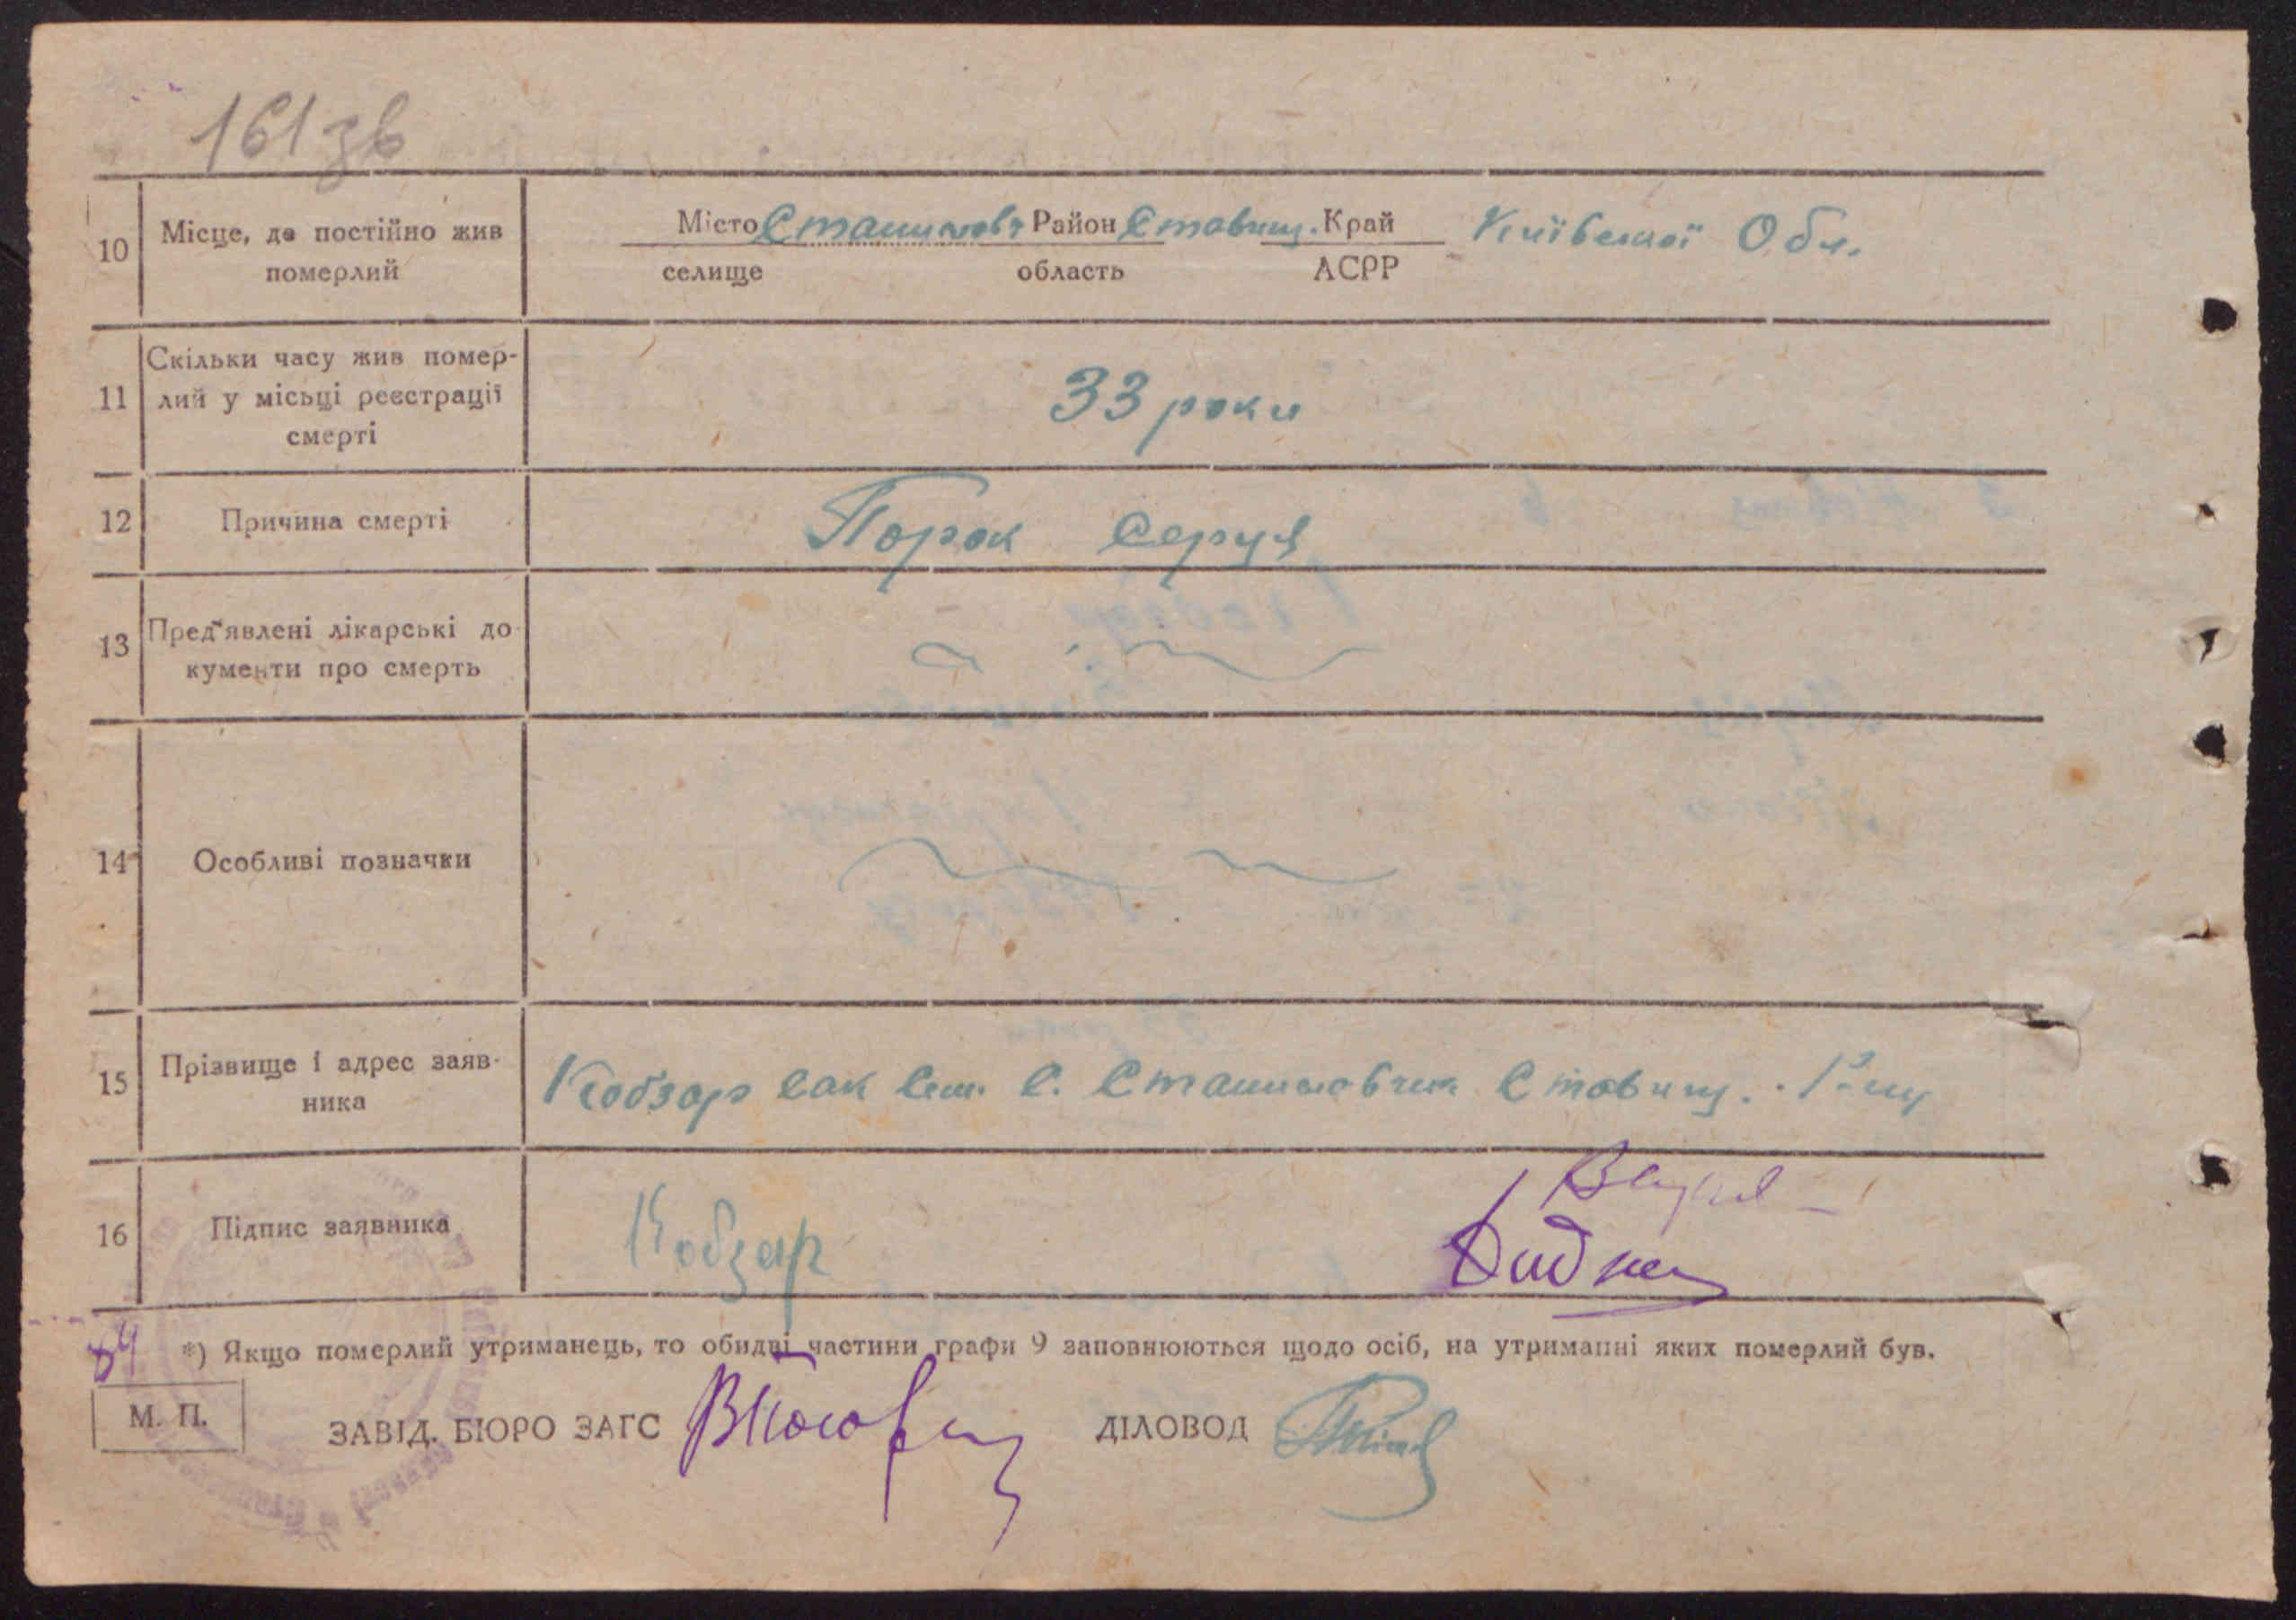 161зв
10 Місце, де постійно жив Місто Район Ставищ. Край Київської Обл.
померлий селище область АСРР
11 Скільки часу жив помер-
лий у місьці реєстрації 33 роки
смерті
12 Причина смерті Порок Серця
13 Пред'явлені лікарські до
кументи про смерть
14 Особливі позначки
15 Прізвище і адрес заяв-
ника Кобзар с. Ставищ.
16 Підпис заявника Кобзар
*) Якщо померлий утриманець, то обидві частини графи 9 заповнюються щодо осіб, на утриманні яких померлий був.
М. П.
ЗАВІД. БЮРО ЗАГС ДІЛОВОД